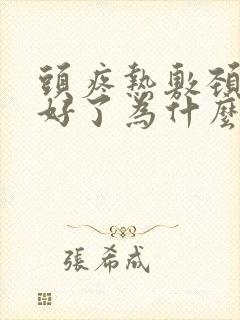 頭疼熱敷頸
好了為什麼
張希成